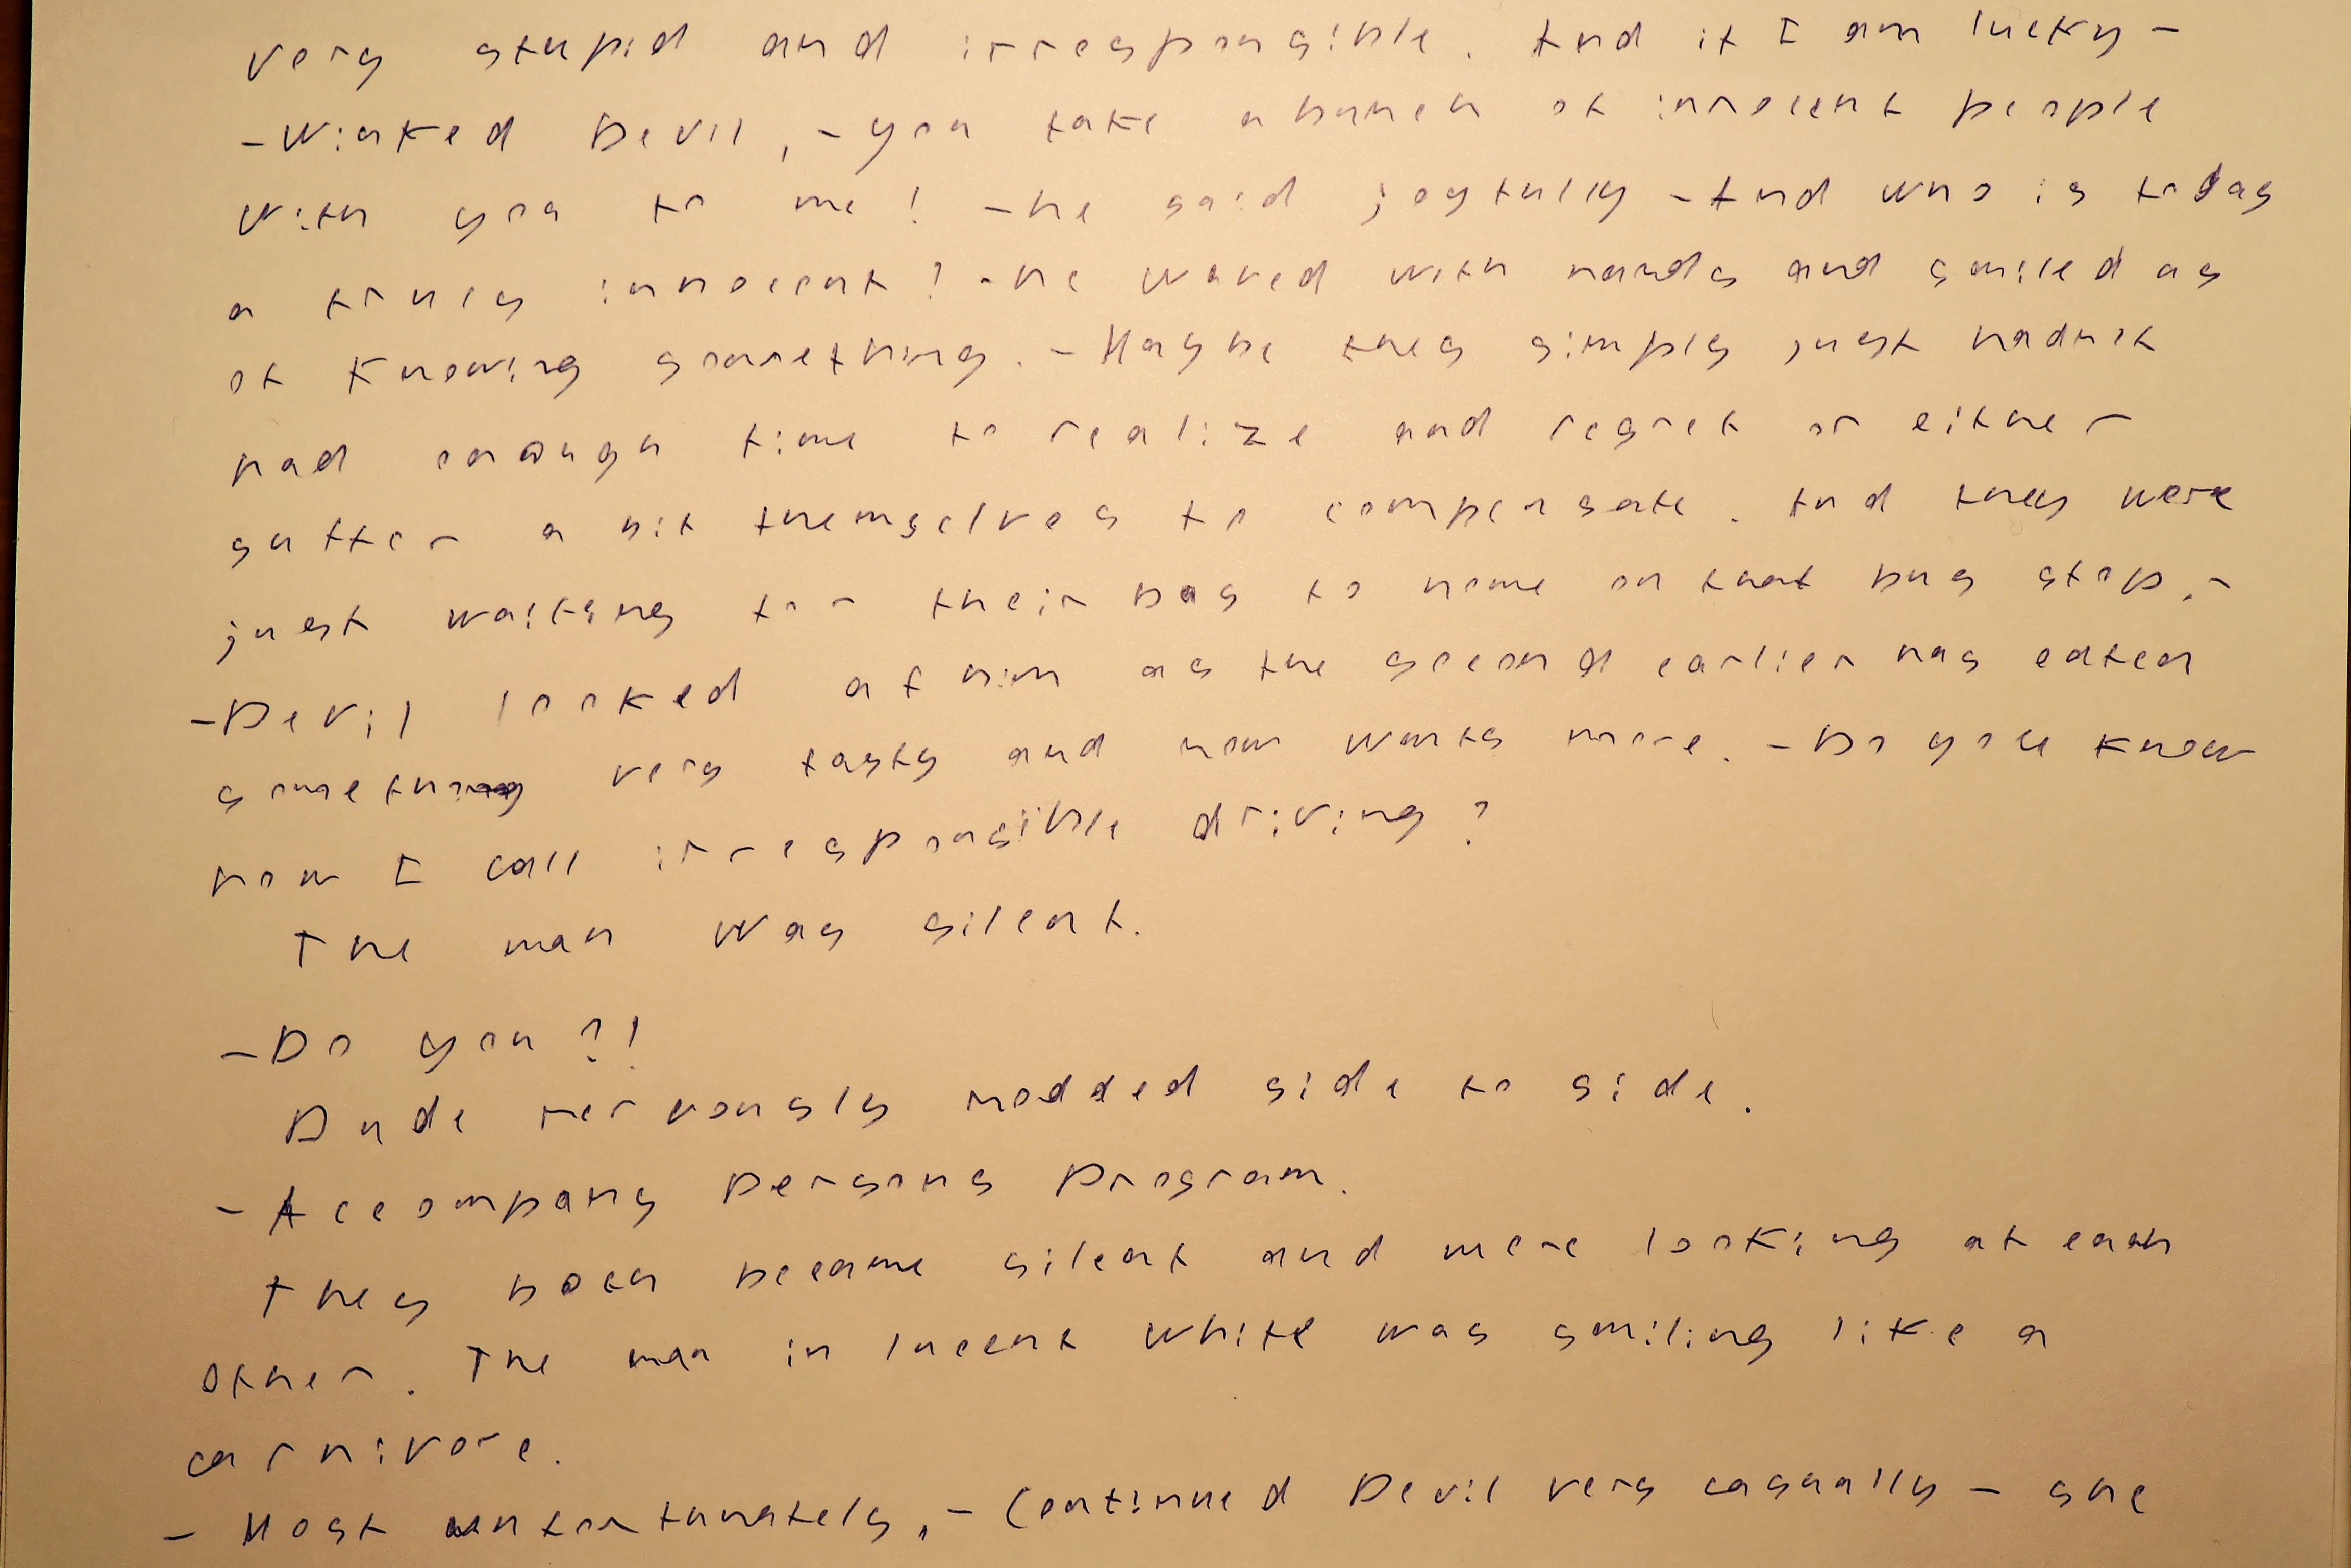 very stupid and irresponsible. And if I am lucky -
- Winked Devil, - you take a bunch of innocent people
with you to me! - he said joyfully - And who is today
a truly innocent? - he waved with hands and smiled as
of knowing something. - Maybe they simply just hadn't
had enough time to realize and regret or either
suffer a bit themselves to compensate. And they were
just waiting for their bus to home on that bus stop, -
- Devil looked at him as the second earlier has eaten
something very tasty and now wants more. - Do you know
how I call irresponsible driving?
The man was silent.
- Do you?!
Dude nervously nodded side to side.
- Accompany Persons Program.
They both became silent and were looking at each
other. The man in lucent white was smiling like a
carnivore.
- Most unfortunately, - Continued Devil very casually - she